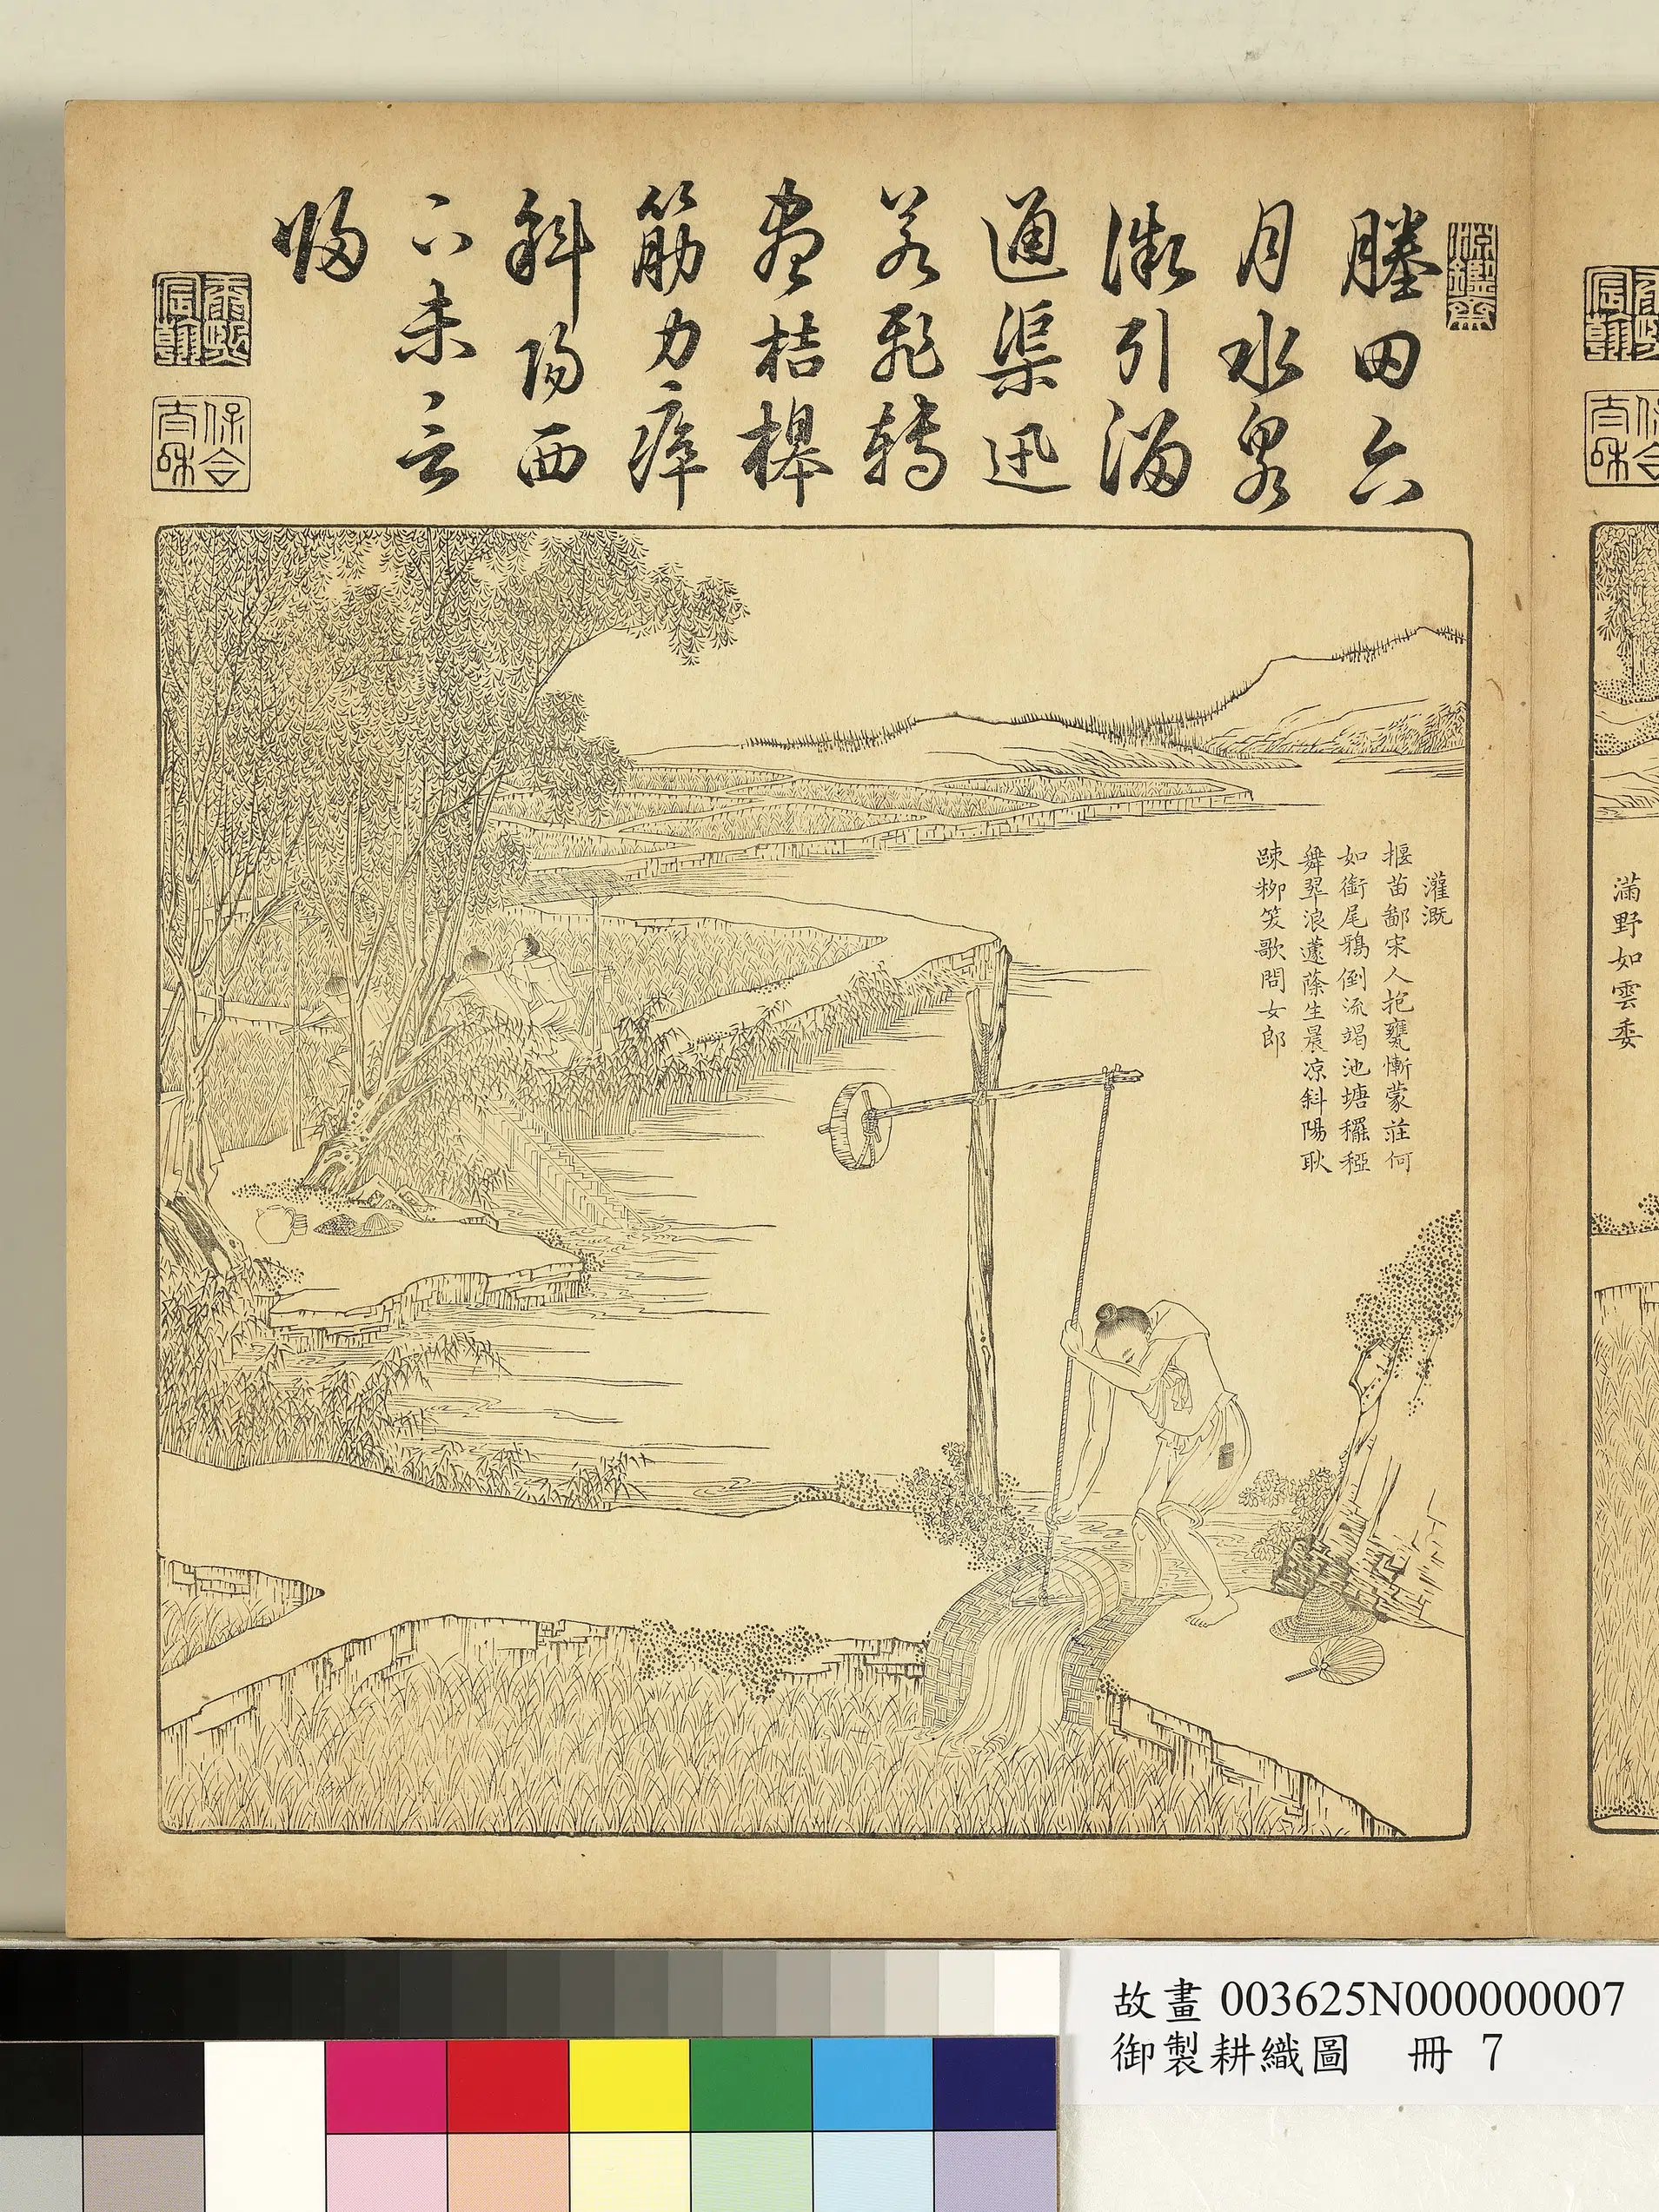 淵鑒齋
塍田六
月水泉
微引溜
通渠迅
若飛轉
盡桔槔
筋力瘁
斜陽西
下未言
歸
康熙宸翰
保合太和
灌溉
揠苗鄙宋人抱甕慚蒙莊何
如銜尾鴉倒流竭池塘䆉稏
舞翠浪蘧蒢生晨凉斜陽耿
踈柳笑歌問女郎
滿野如雲委
故畫 003625N000000007
御製耕織圖 冊 7